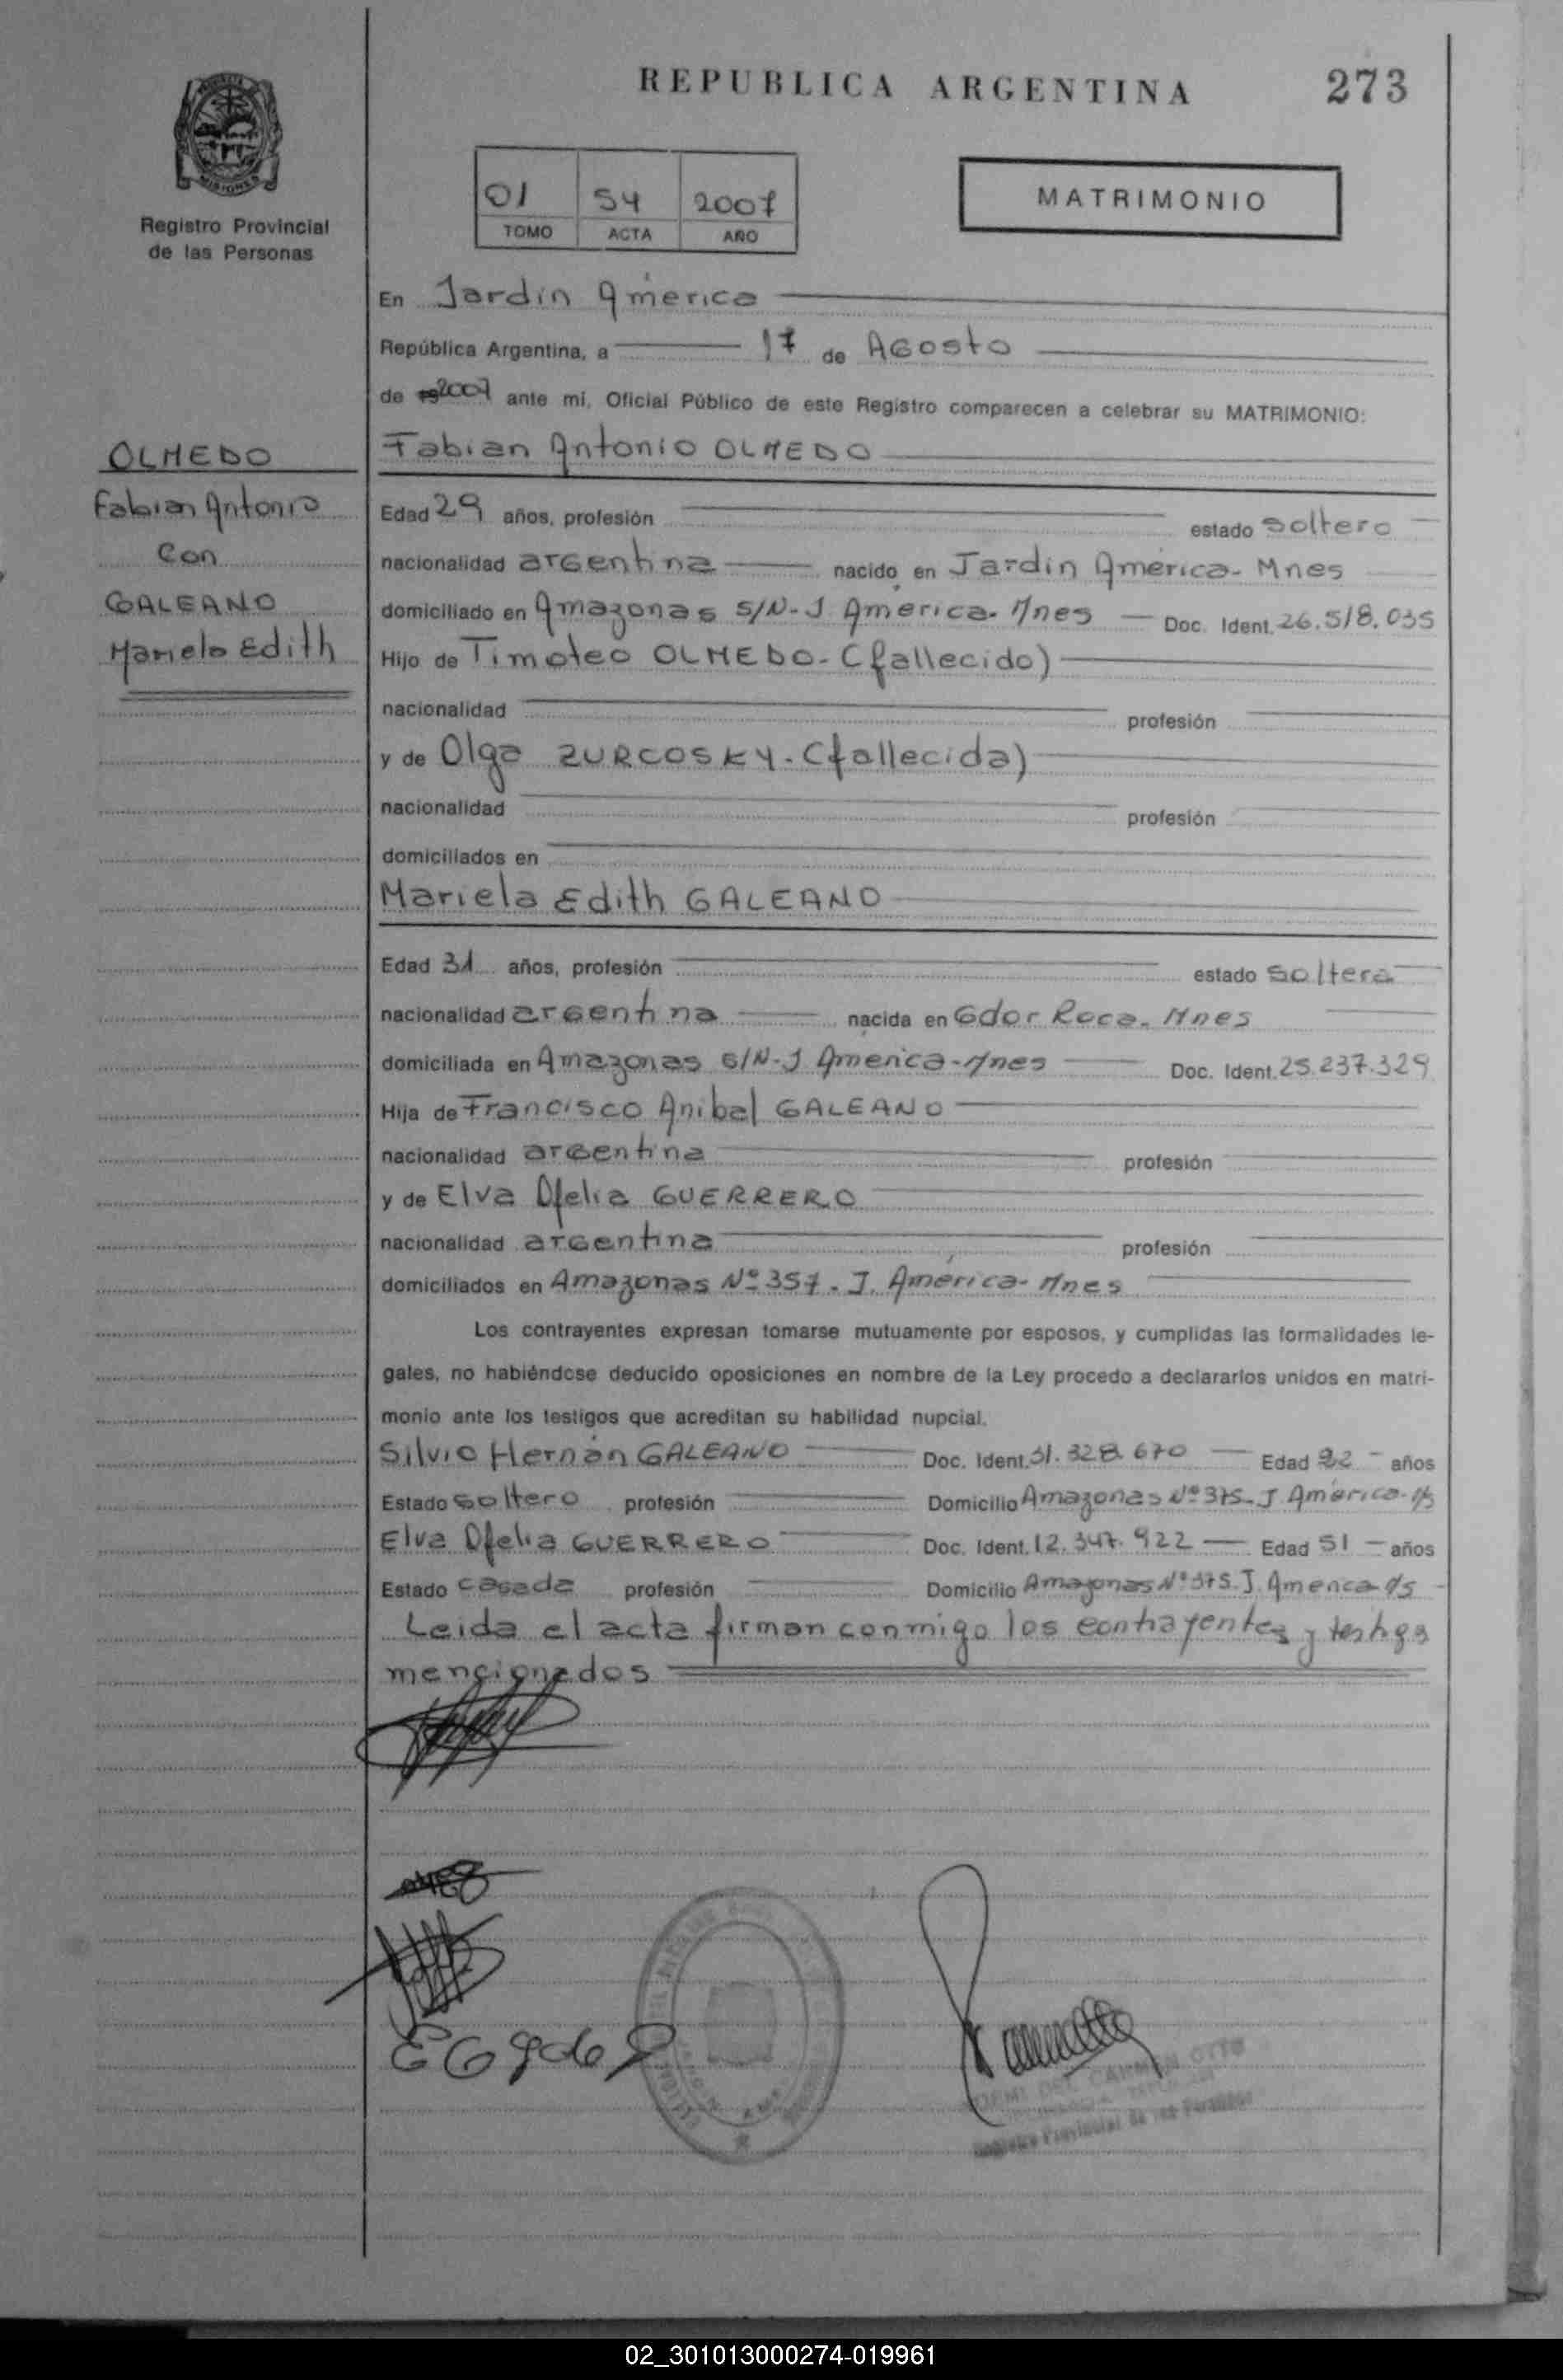 REPUBLICA ARGENTINA 273
MISIONES
Registro Provincial
de las Personas
01 54 2007
TOMO ACTA AÑO
MATRIMONIO
En Jardín América
República Argentina, a 17 de Agosto
de 2007 ante mí, Oficial Público de este Registro comparecen a celebrar su MATRIMONIO:
OLMEDO
Fabian Antonio
Con
GALEANO
Mariela Edith
Fabian Antonio OLMEDO
Edad 29 años, profesión estado soltero
nacionalidad argentina nacido en Jardín América - Mnes
domiciliado en Amazonas S/N - J. América - Mnes Doc. Ident. 26.518.035
Hijo de Timoteo OLMEDO - (fallecido)
nacionalidad profesión
y de Olga ZURCOSKY - (fallecida)
nacionalidad profesión
domiciliados en
Mariela Edith GALEANO
Edad 31 años, profesión estado soltera
nacionalidad argentina nacida en Gdor Roca - Mnes
domiciliada en Amazonas S/N - J América - Mnes Doc. Ident. 25.237.329
Hija de Francisco Anibal GALEANO
nacionalidad argentina profesión
y de Elva Ofelia GUERRERO
nacionalidad argentina profesión
domiciliados en Amazonas Nº 357 - J. América - Mnes
Los contrayentes expresan tomarse mutuamente por esposos, y cumplidas las formalidades le-
gales, no habiéndose deducido oposiciones en nombre de la Ley procedo a declararlos unidos en matri-
monio ante los testigos que acreditan su habilidad nupcial.
Silvio Hernán GALEANO Doc. Ident. 31.328.670 Edad 22 años
Estado soltero profesión Domicilio Amazonas Nº 375 - J. América - Ms
Elva Ofelia GUERRERO Doc. Ident. 12.347.922 Edad 51 años
Estado casada profesión Domicilio Amazonas Nº 375 - J. América - Ms
Leída el acta firman conmigo los contrayentes y testigos
mencionados
DEL CARMEN OTTO
Registro Provincial de las Personas
02_301013000274-019961